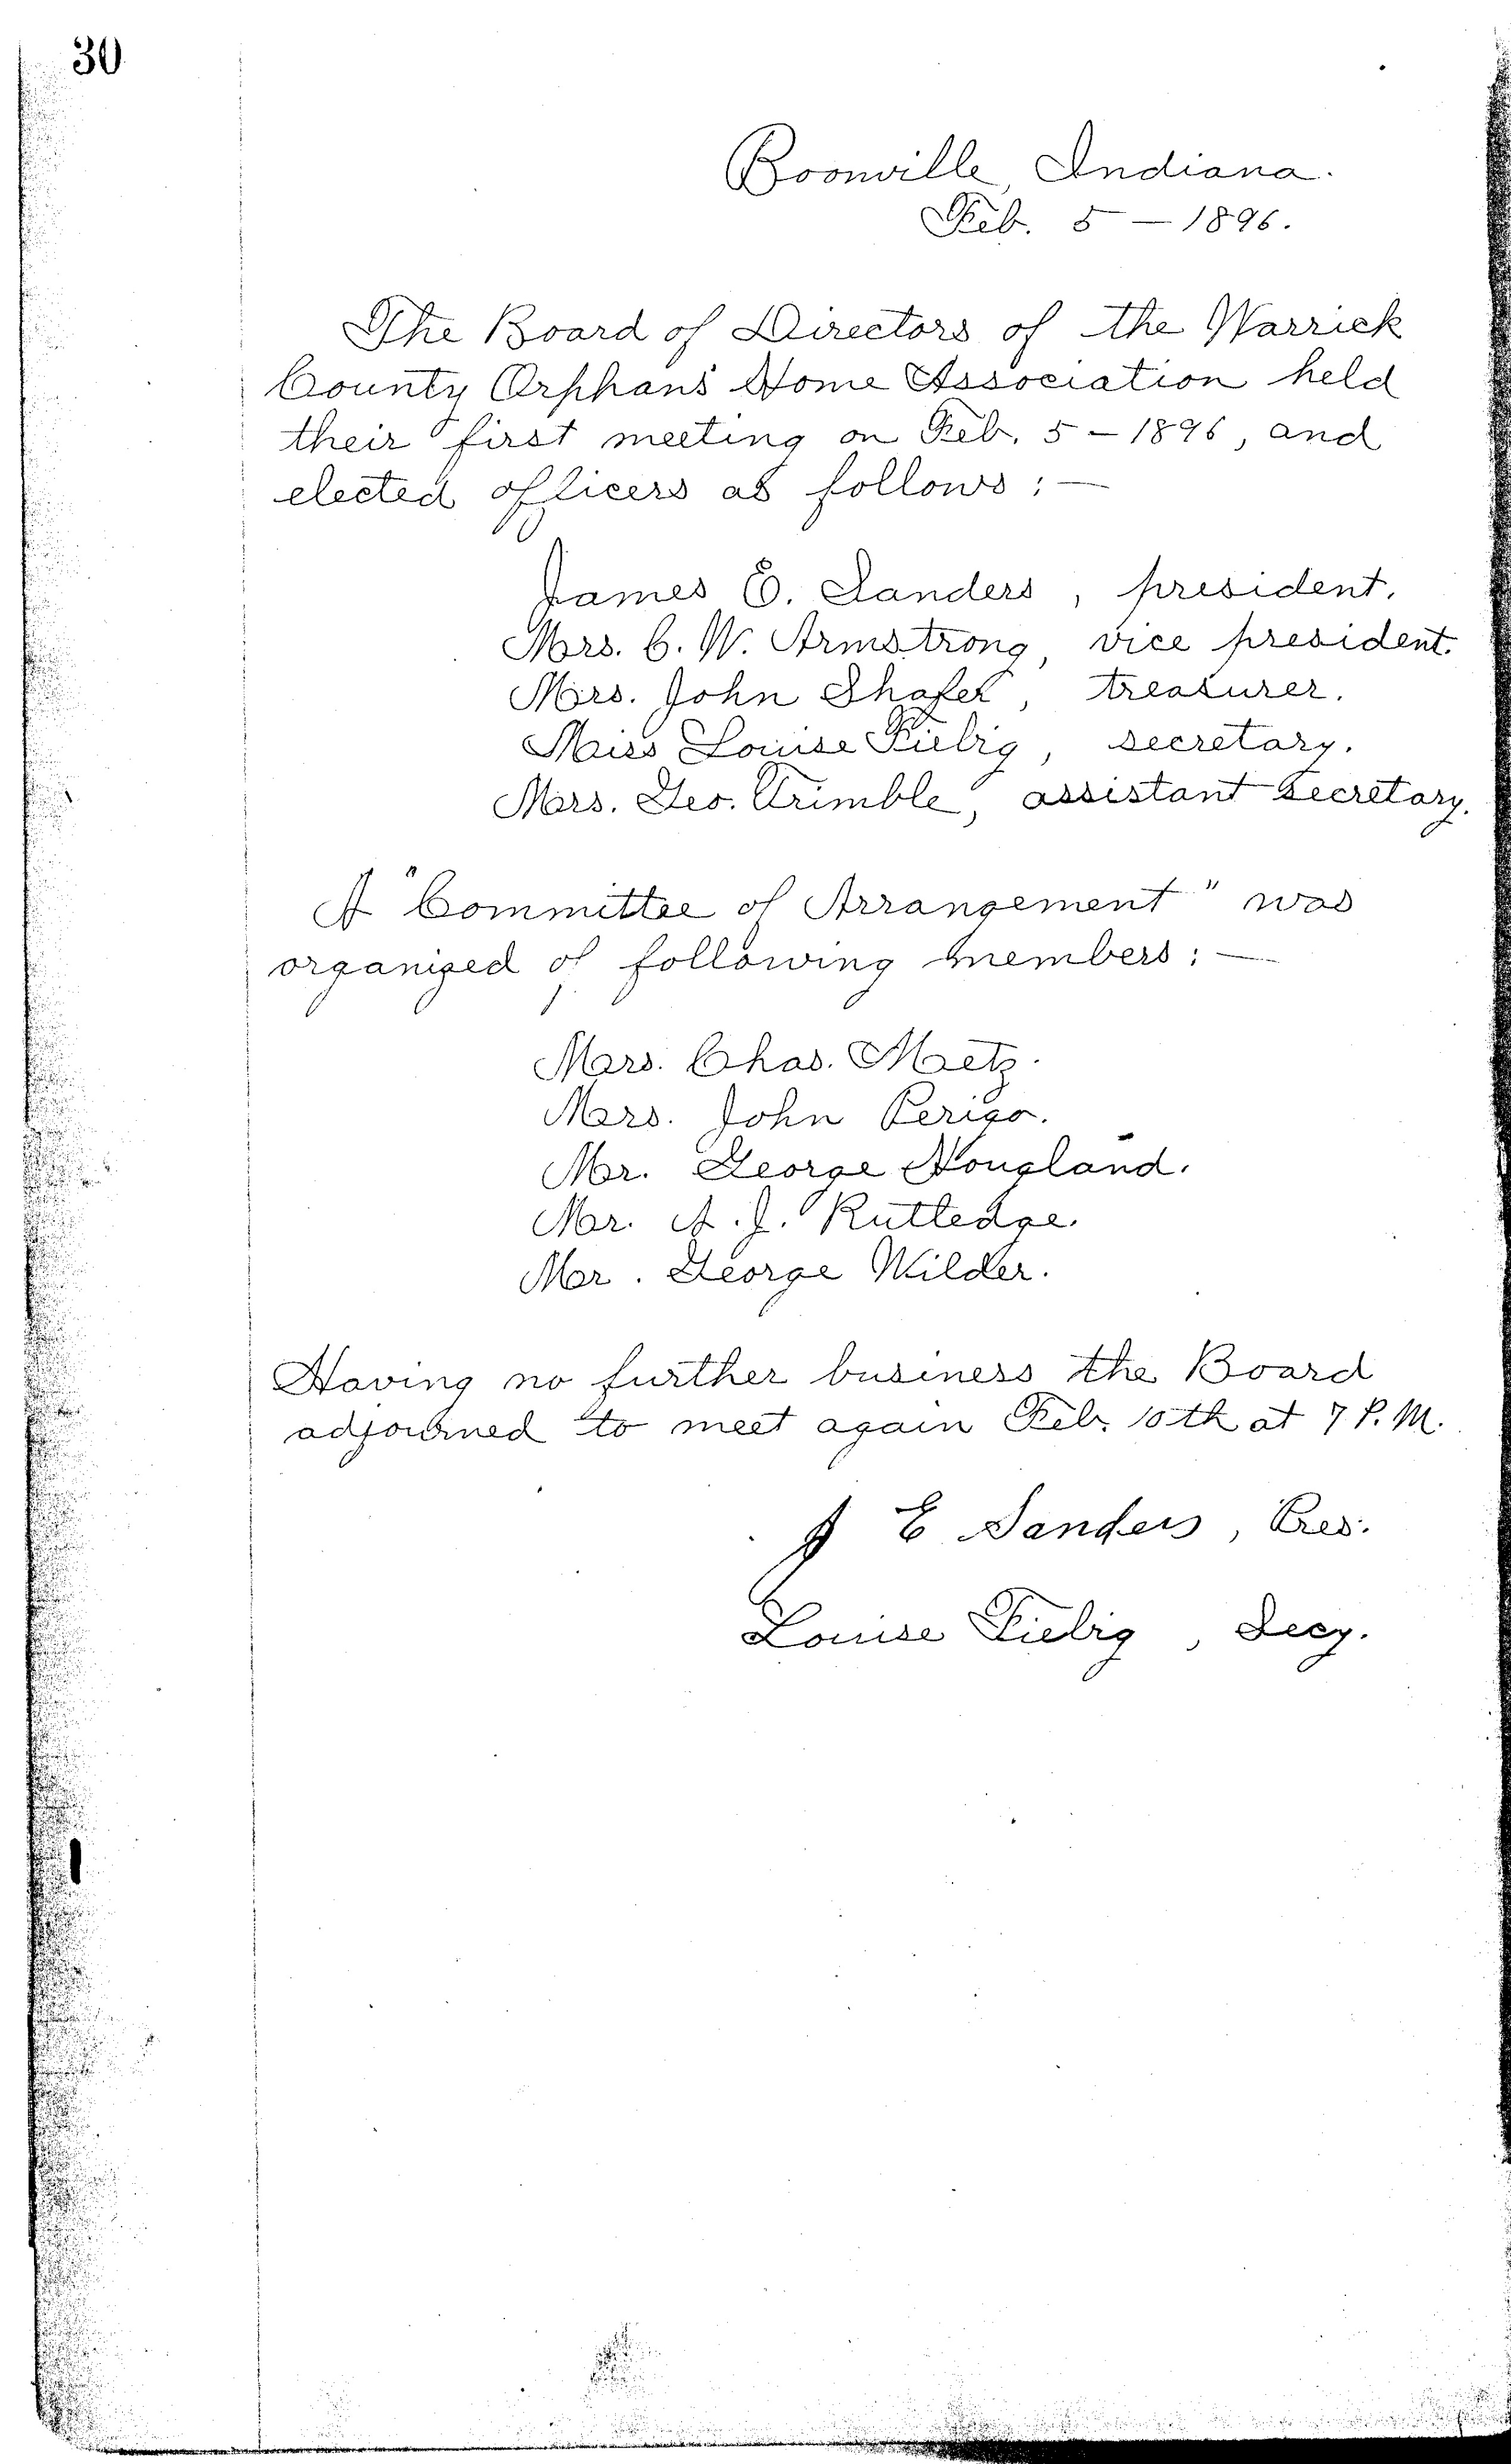 30
Boonville, Indiana.
Feb. 5 — 1896.
The Board of Directors of the Warrick
County Orphans' Home Association held
their first meeting on Feb. 5 – 1896, and
elected officers as follows : —
James E. Sanders, president.
Mrs. C. W. Armstrong, vice president.
Mrs. John Shafer, treasurer.
Miss Louise Fiebig, secretary.
Mrs. Geo. Trimble, assistant secretary.
A "Committee of Arrangement" was
organized of following members : —
Mrs. Chas. Metz.
Mrs. John Perigo.
Mr. George Hougland.
Mr. A. J. Rutledge.
Mr. George Wilder.
Having no further business the Board
adjourned to meet again Feb. 10th at 7 P.M.
J E Sanders, Pres.
Louise Fiebig, Secy.